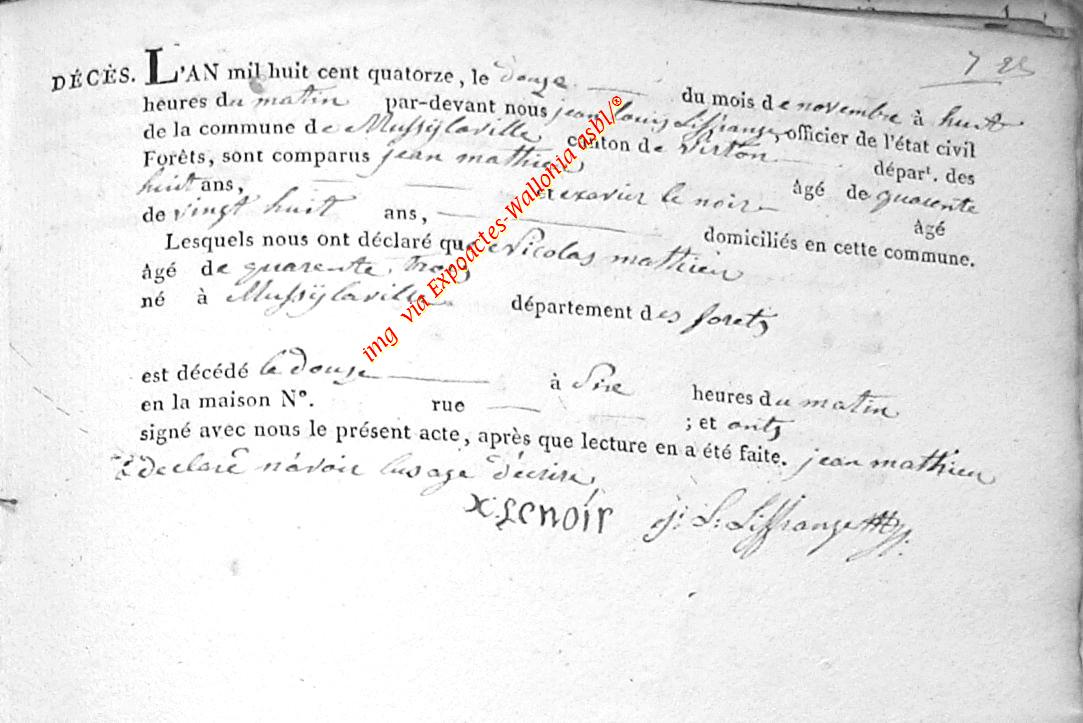 7 25
DÉCÈS. L'AN mil huit cent quatorze, le douze du mois de novembre à huit
heures du matin par-devant nous jean louis Liffrange, officier de l'état civil
de la commune de Mussÿlaville canton de Virton départ. des
Forêts, sont comparus jean mathieu âgé de quarente
huit ans, et exavier le noir âgé
de vingt huit ans, domiciliés en cette commune.
Lesquels nous ont déclaré que Nicolas mathieu
âgé de quarente trois
né à Mussÿlaville département des forets
est décédé le douze à Sixe heures du matin
en la maison N°. rue ; et onts
signé avec nous le présent acte, après que lecture en a été faite. jean mathieu
declaré n'avoir lusage d'ecrire
X. Lenoir j: L: Liffrange
img via Expoactes-Wallonia asbl/®